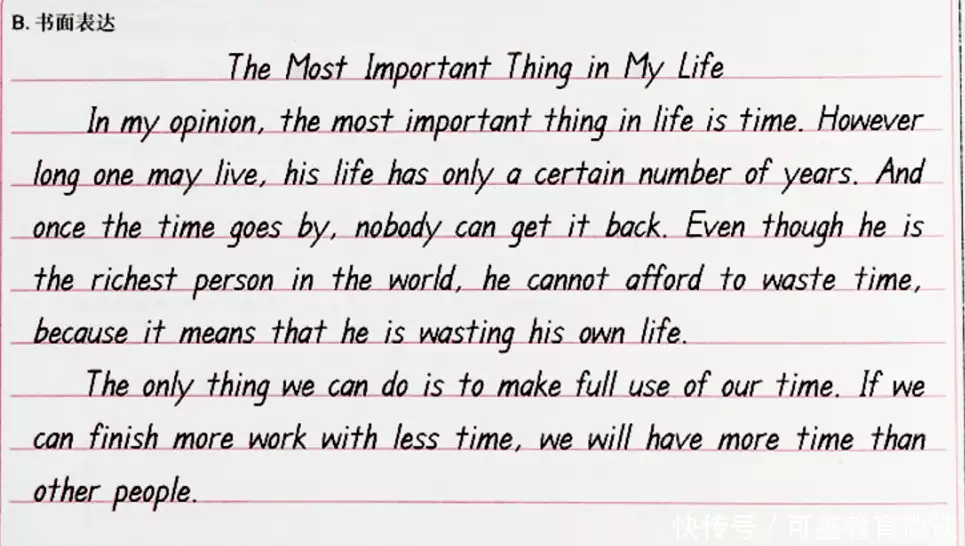 B. 书面表达
The Most Important Thing in My Life
In my opinion, the most important thing in life is time. However
long one may live, his life has only a certain number of years. And
once the time goes by, nobody can get it back. Even though he is
the richest person in the world, he cannot afford to waste time,
because it means that he is wasting his own life.
The only thing we can do is to make full use of our time. If we
can finish more work with less time, we will have more time than
other people.
快传号 / 可鑫教育微谈